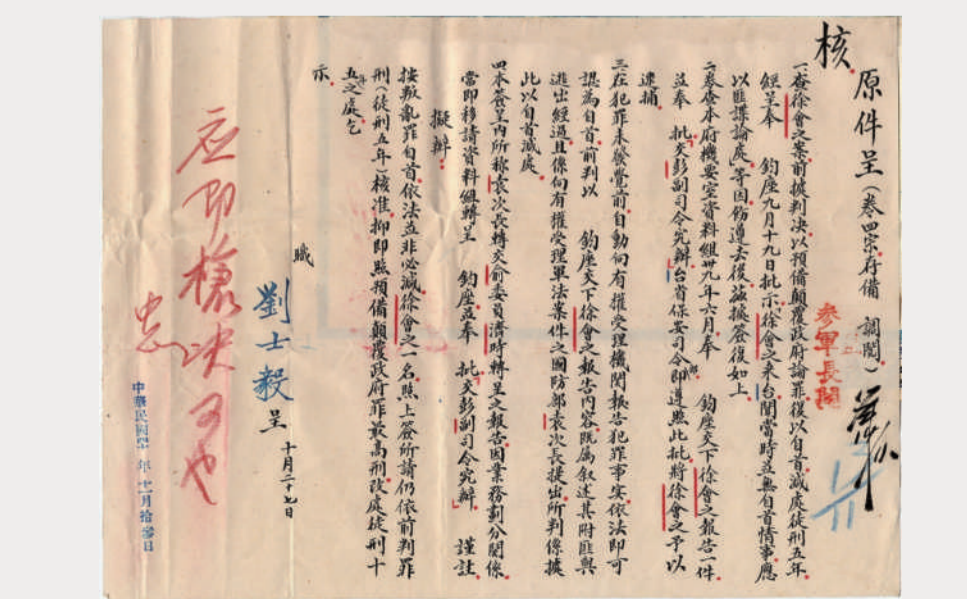 核
原件呈(卷四宗存備 調閱)
參軍長閱
一、查徐會之案前據判決以預備顛覆政府論罪復以自首減處徒刑五年
經呈奉 鈞座九月十九日批示「徐會之來台聞當時並無自首情事應
以匪諜論處」等因飭遵去後茲據簽復如上
二、卷查本府機要室資料組卅九年六月奉 鈞座交下徐會之報告一件
並奉 批「交彭副司令究辦」台省保安司令部即遵照此批將徐會之予以
逮捕
三、在犯罪未發覺前自動向有權受理機關報告犯罪事實依法即可
認為自首前判以 鈞座交下徐會之報告內容既屬敘述其附匪與
逃出經過且係向有權受理軍法案件之國防部袁次長提出所判係據
此以自首減處
四、本簽呈內所稱袁次長轉交俞委員濟時轉呈之報告因業務劃分關係
當即移請資料組轉呈 鈞座並奉 批「交彭副司令究辦」 謹註
擬辦
按叛亂罪自首依法並非必減徐會之一名照上簽所請仍依前判罪
刑(徒刑五年)核准抑即照預備顛覆政府罪最高刑改處徒刑十
五年之處乞
示
職
劉士毅呈
十月二十七日
應即槍決可也
中華民國 年十一月拾 日